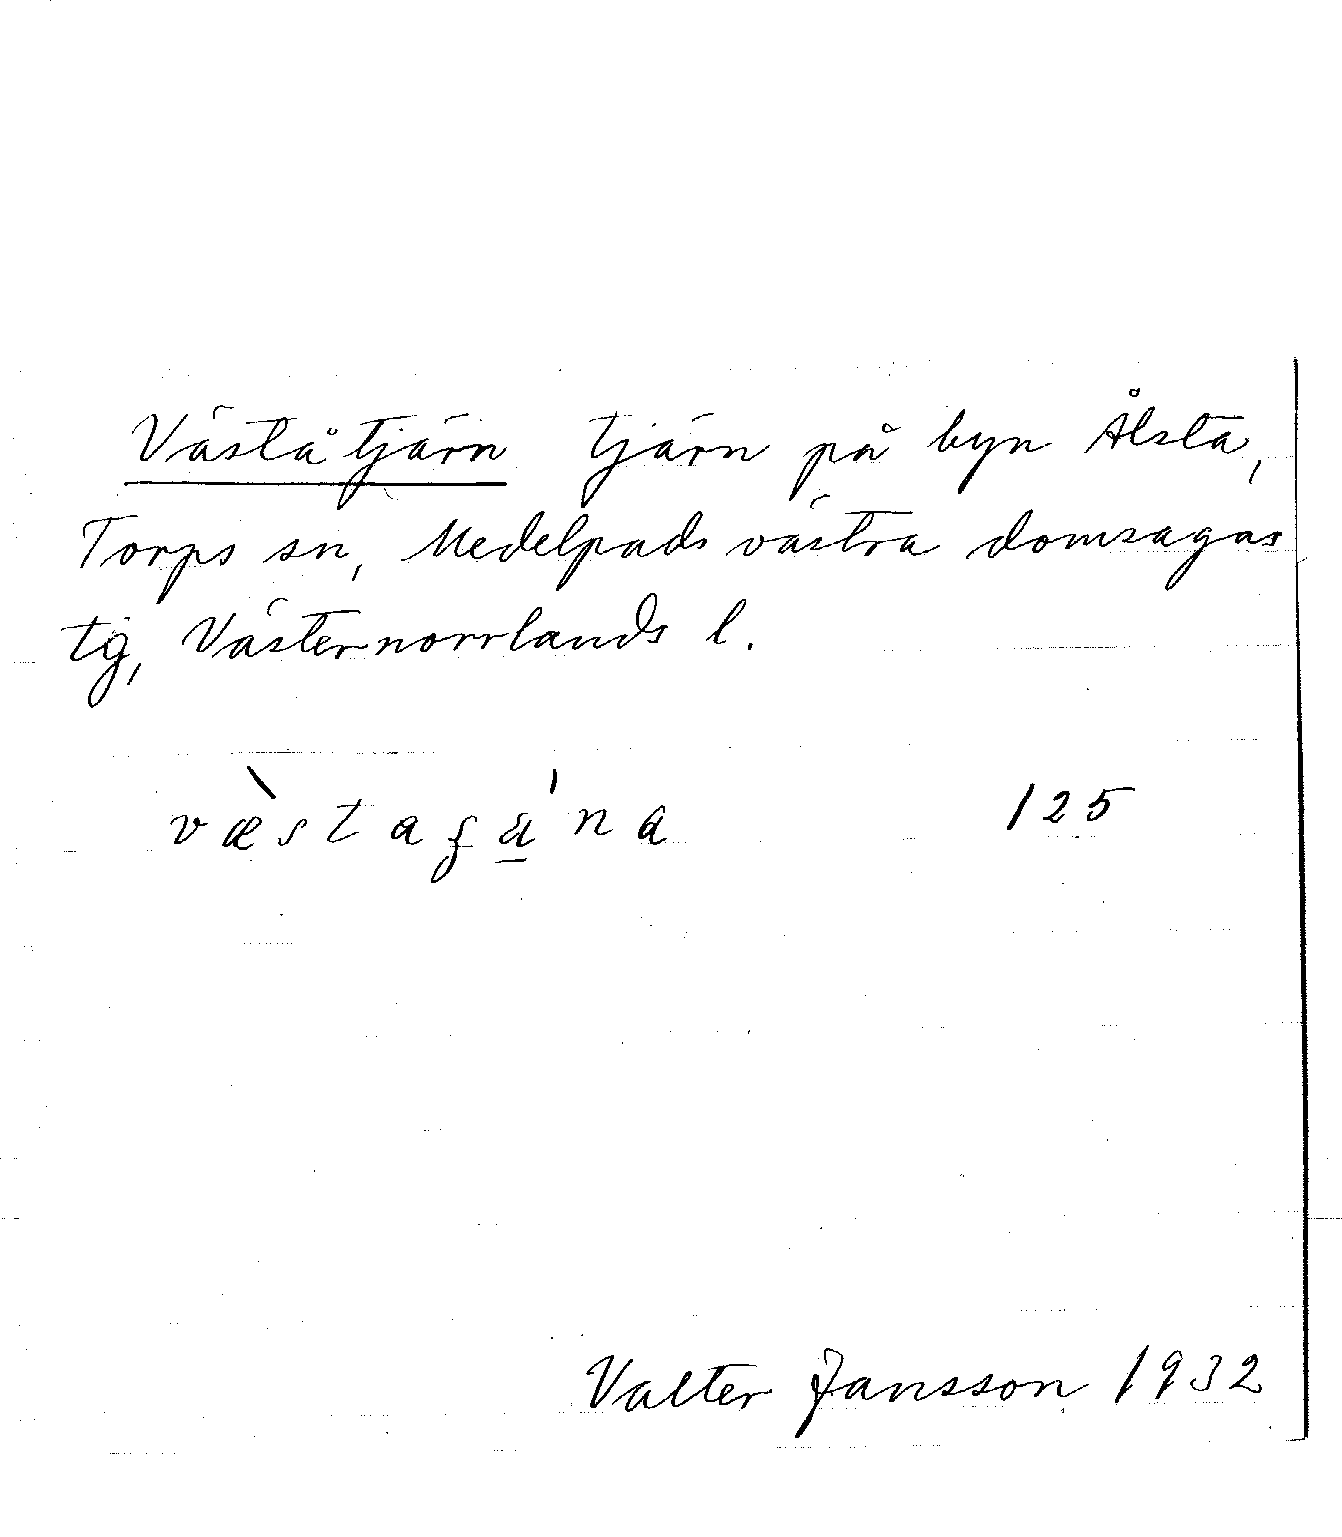 Väståtjärn tjärn på byn Ålsta,
Torps sn, Medelpads västra domsagas
tg, Västernorrlands l.
væ̀staʂa̲ˈna 125
Valter Jansson 1932